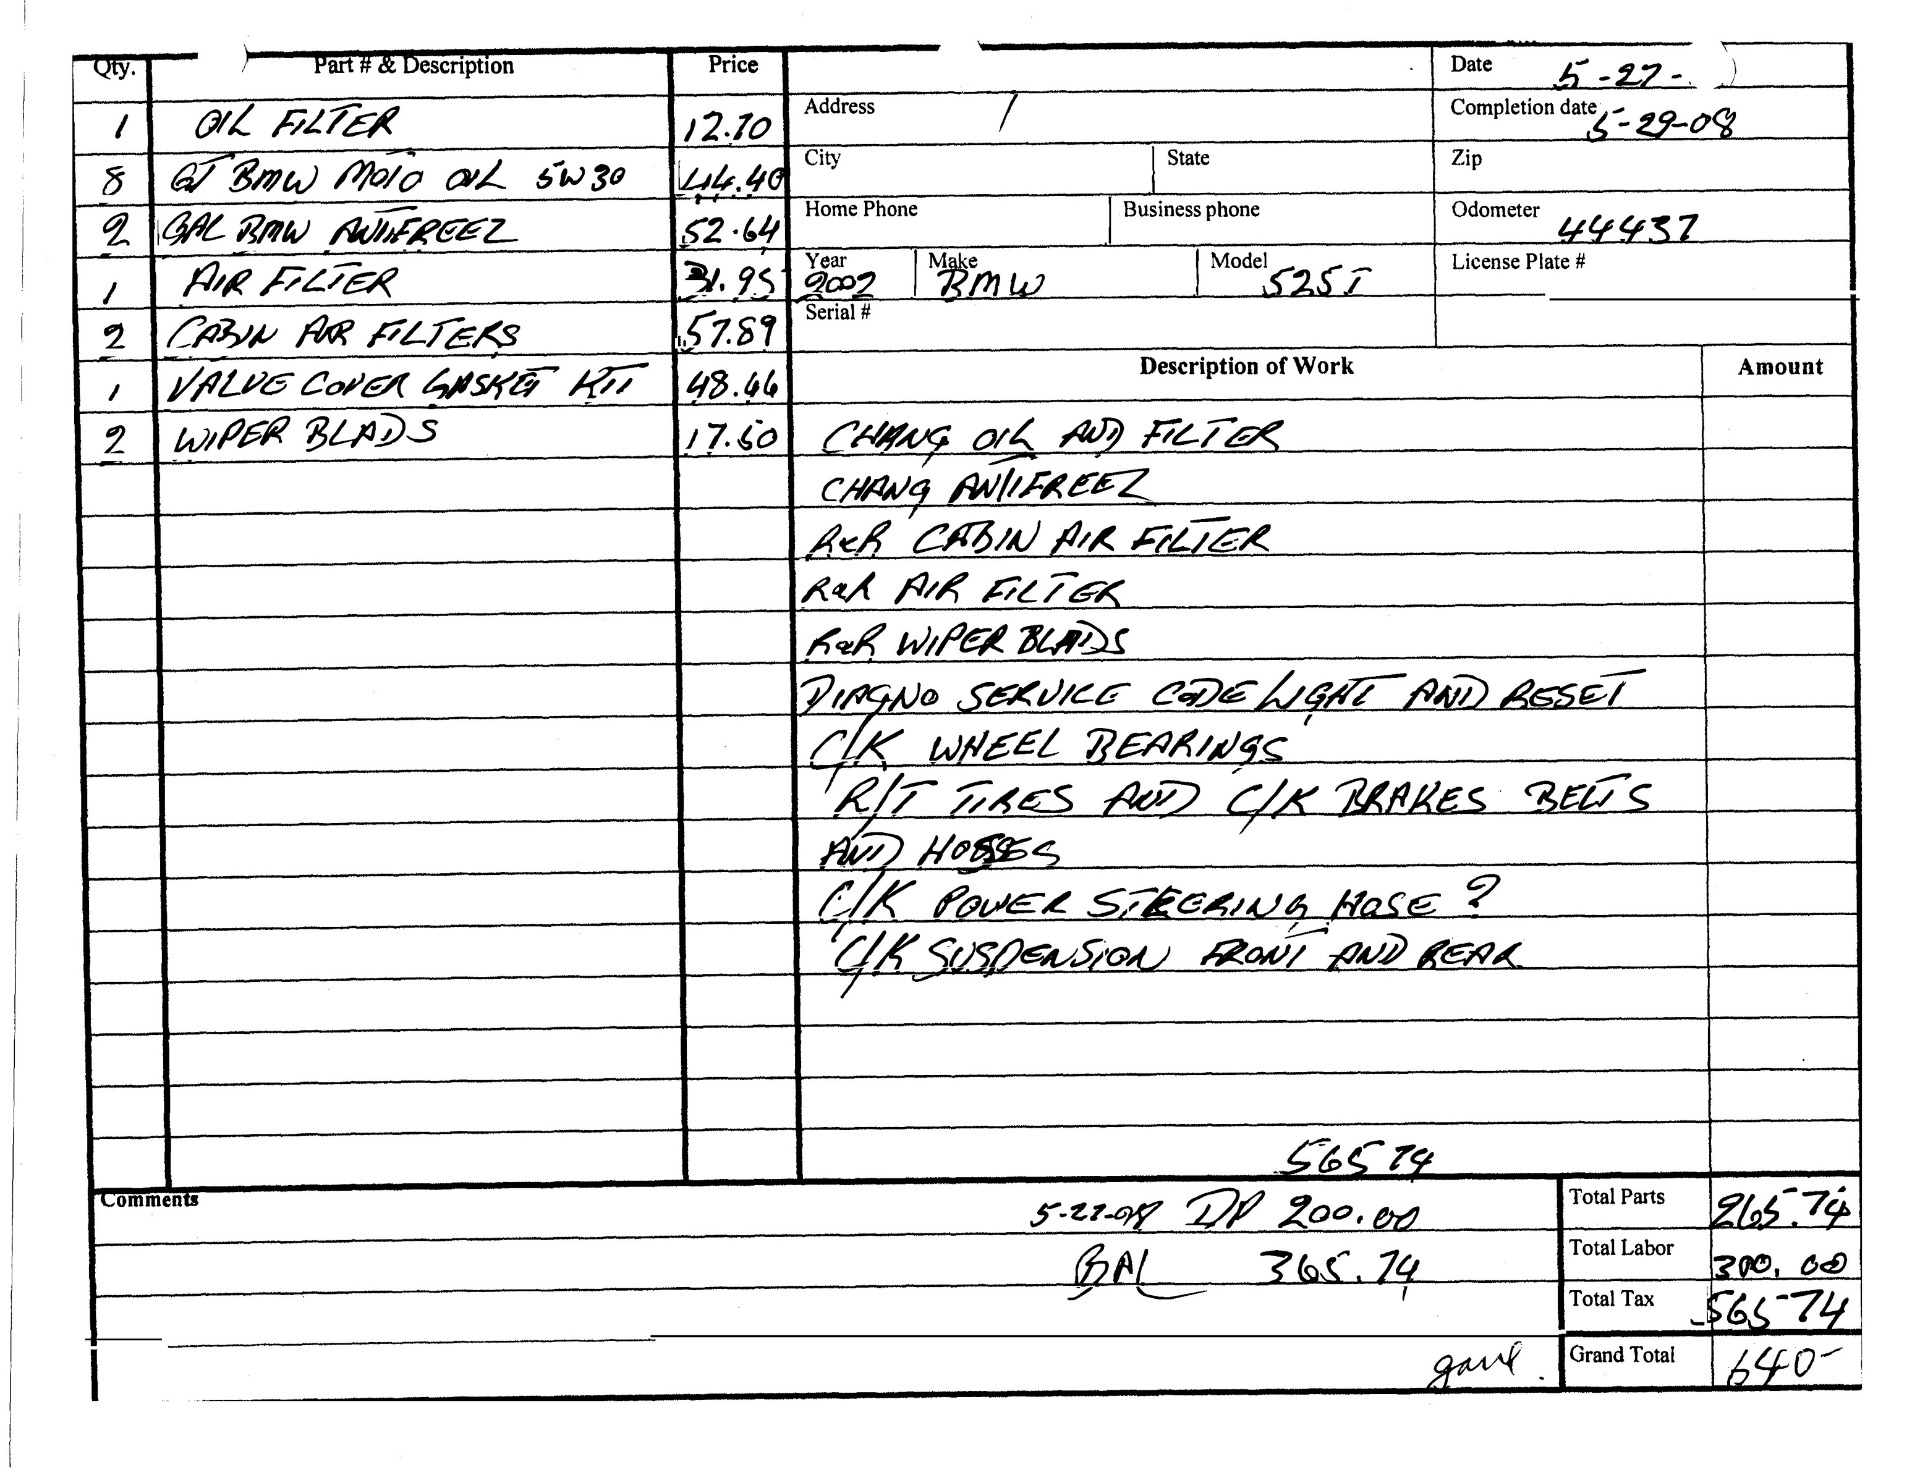 Qty. Part # & Description Price Date 5-27-
1 OIL FILTER 12.70 Address Completion date 5-29-08
8 QT BMW MOTO OIL 5W30 44.40 City State Zip
2 GAL BMW ANTIFREEZ 52.64 Home Phone Business phone Odometer 44437
1 AIR FILTER 31.95 Year 2002 Make BMW Model 525I License Plate #
2 CABIN AIR FILTERS 57.89 Serial #
1 VALVE COVER GASKET KIT 48.46 Description of Work Amount
2 WIPER BLADS 17.50 CHANG OIL AND FILTER
CHANG ANTIFREEZ
R&R CABIN AIR FILTER
R&R AIR FILTER
R&R WIPER BLADS
DIAGNO SERVICE CODE LIGHT AND RESET
C/K WHEEL BEARINGS
R/T TIRES AND C/K BRAKES BELTS
AND HOSES
C/K POWER STEERING HOSE ?
C/K SUSPENSION FRONT AND REAR
565 74
Comments 5-27-08 DP 200.00 Total Parts 265.74
BAL 365.74 Total Labor 300.00
Total Tax 565 74
Grand Total 640-